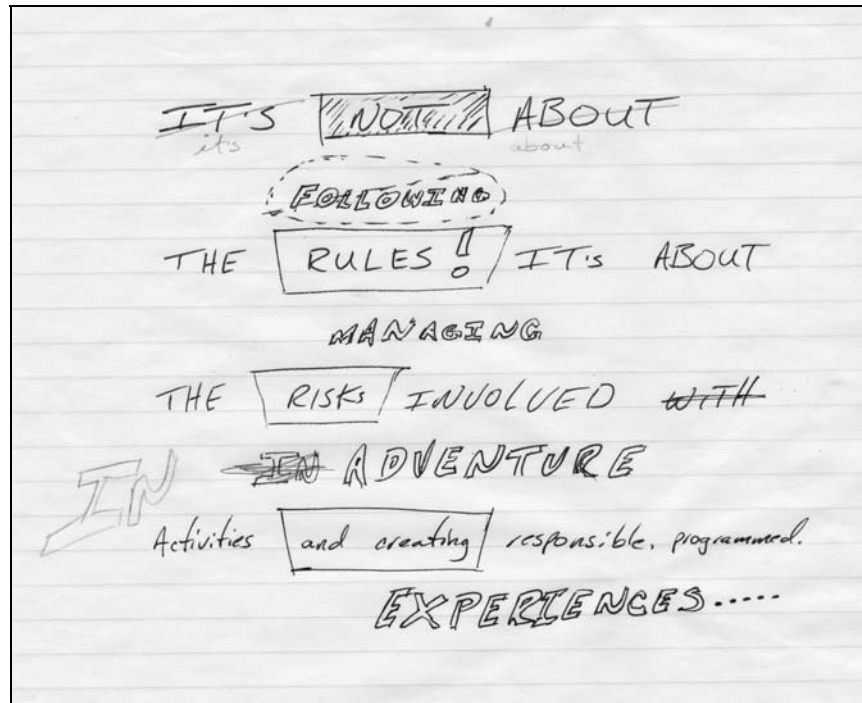 IT'S NOT ABOUT
it's about
FOLLOWING
THE RULES! IT's ABOUT
MANAGING
THE RISKS INVOLVED WITH
IN IN ADVENTURE
Activities and creating responsible, programmed.
EXPERIENCES.....